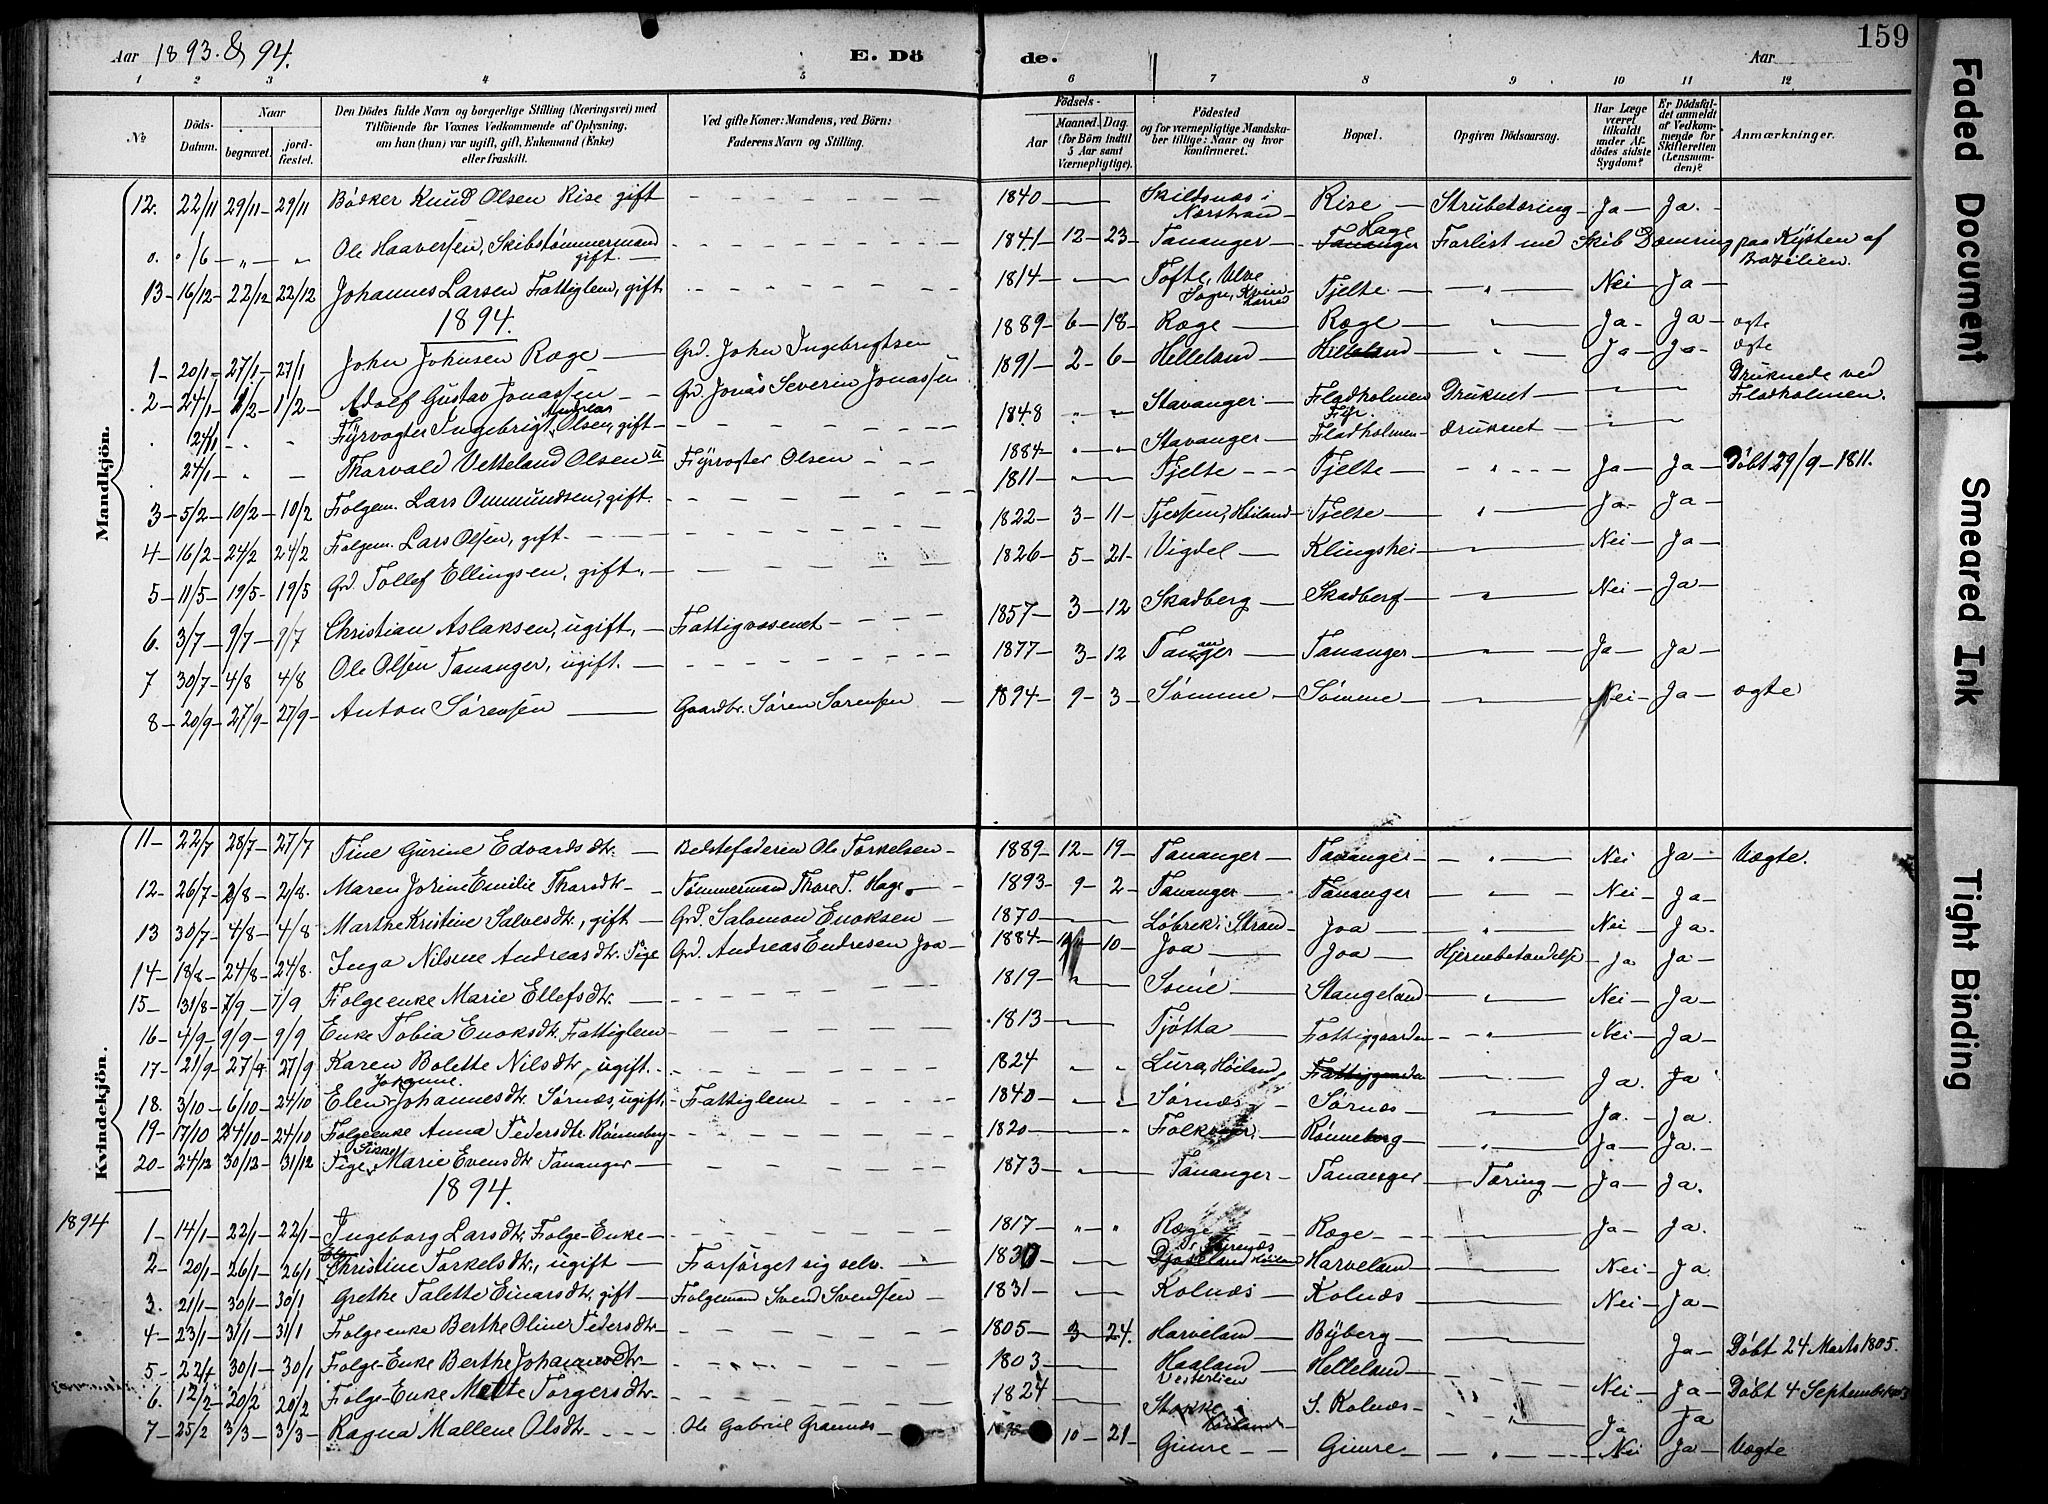 Aar 1893 & 94.
E. Döde.
Aar
159
1 2 3 4 5 6 7 8 9 10 11 12
No
Döds-Datum.
Naar
begravet.
jordfæstet.
Den Dödes fulde Navn og borgerlige Stilling (Næringsvei) med Tilföiende for Voxnes Vedkommende af Oplysning, om han (hun) var ugift, gift, Enkemand (Enke) eller fraskilt.
Ved gifte Koner: Mandens, ved Börn: Faderens Navn og Stilling.
Födsels-
Aar
Maaned.
Dag.
(for Börn indtil 5 Aar samt Værnepligtige).
Födested og for værnepligtige Mandskaber tillige: Naar og hvor konfirmeret.
Bopæl.
Opgiven Dödsaarsag.
Har Læge været tilkaldt under Afdödes sidste Sygdom?
Er Dödsfaldet anmeldt af Vedkommende for Skifteretten (Lensmanden)?
Anmærkninger.
Mandkjön.
12. 22/11 29/11 29/11 Bödker Knud Olsen Rise gift 1840 Skildsnæs i Nærstran Rise Strubetæring Ja Ja.
Ole Haaversen, Skibstømmermand gift. 1841 12 23 Tananger Tananger Hage Forlist med Skib Dæmring paa Kysten af Brazilien.
13 16/12 22/12 22/12 Johannes Larsen Fattiglem, gift 1814 Tofte, Ulve Sogn, Kvinherred Tjelte " Nei Ja
1894.
1 20/1 27/1 27/1 John Johnsen Ræge Grd. John Ingebrigtsen 1889 6 18 Ræge Ræge " Ja Ja ægte
2 24/1 1/2 1/2 Adolf Gustav Jonassen Grd. Jonas Severin Jonassen 1891 2 6 Helleland Helleland " Ja Ja ægte
24/1 Fyrvogter Ingebrigt Andreas Olsen, gift 1848 " " Stavanger Fladholmen Fyr. Druknet Druknede ved Fladholmen.
24/1 Thorvald Vetteland Olsen u Fyrvogter Olsen 1884 " " Stavanger Fladholmen druknet
3 5/2 10/2 10/2 Folgem. Lars Ommundsen, gift. 1811 Tjelte Tjelte " Ja Ja Døbt 29/9-1811.
4 16/2 24/2 24/2 Folgem. Lars Olsen, gift. 1822 3 11 Tjessem, Høiland Tjelte " Ja Ja
5 11/5 19/5 19/5 Grd. Tollef Ellingsen, gift. 1826 5 21 Vigdel Klingshei Nei Ja
6. 3/7 9/7 9/7 Christian Aslaksen, ugift. Fattigvæsenet 1857 3 12 Skadberg Skadberg " Nei Ja
7 30/7 4/8 4/8 Ole Olsen Tananger, ugift. 1877 3 12 Tananger Tananger " Ja Ja
8 20/9 27/9 27/9 Anton Sørensen Gaardbr. Søren Sørensen 1894 9 3 Sømme Sømme Nei Ja ægte
Kvindekjön.
11 22/7 28/7 27/7 Tine Gurine Edvardsdtr. Bedstefaderen Ole Torkelsen 1889 12 19 Tananger Tananger " Nei Ja Uægte.
12 26/7 2/8 2/8. Maren Jorine Emilie Thorsdtr Tømmermand Thore T. Hage 1893 9 2 Tananger Tananger " Nei Ja
13 30/7 4/8 4/8 Marthe Kristine Salvesdtr, gift Grd Salomon Enoksen 1870 Løbrek i Stran Joa " Nei Ja.
14 18/8 24/8 24/8. Inga Nilsine Andreasdtr. Pige Grd. Andreas Endresen Joa 1884 10 Joa Joa Hjernebetændelse Ja Ja
15 31/8 7/9 7/9 Folgeenke Marie Ellefsdtr. 1819 " Sømme Stangeland " Nei Ja
16 4/9 9/9 9/9 Enke Tobia Enoksdtr. Fattiglem 1813 Tjøtta Fattiggaarden " Nei Ja
17 21/9 27/9 27/9 Karen Bolette Nilsdtr, ugift. 1824 " " Lura, Høiland Fattiggaarden Ja. Ja
18. 3/10 6/10 24/10 Elen Johanne Johannesdtr. Sørnæs, ugift. Fattiglem 1840 " Sørnæs Sørnæs Ja. Ja.
19 17/10 24/10 24/10 Folgeenke Anna Pedersdtr. Rønneberg 1820 " Rønneberg " Ja Ja.
20 24/12 30/12 31/12 Pige Marie Evensdtr Tananger 1873 Tananger Tananger Tæring Ja Ja.
1894.
1894 1 14/1 22/1 22/1 Ingeborg Larsdtr. Folge-Enke 1817 " " Ræge Ræge Ja Ja.
2 20/1 26/1 26/1 Christine Torkelsdtr., ugift Forsørget sig selv. Harveland Nei Ja.
3. 21/1 30/1 30/1 Grethe Talette Einarsdtr. gift Folgemand Svend Svendsen 1831 " Kolnæs Kolnæs Nei Ja
4 23/1 31/1 31/1 Folgeenke Berthe Oline Pedersdtr 1805 3 24. Harveland Byberg Ja Døbt 24 Marts 1805.
5 30/1 30/1 Folge-Enke Berthe Johannesdtr 1803 Haaland Vesterlien Helleland Nei Ja Døbt 4 September
6. 12/2 20/2 20/2 Folge-Enke Mette Torgersdtr. 1824 Stokke Høiland S. Kolnæs Ja Ja
7 25/2 3/3 3/3 Ragna Mallene Olsdtr. Ole Gabriel Grannæs 10 21 Gimre Gimre " Nei Ja Uægte
Faded Document
Smeared Ink
Tight Binding